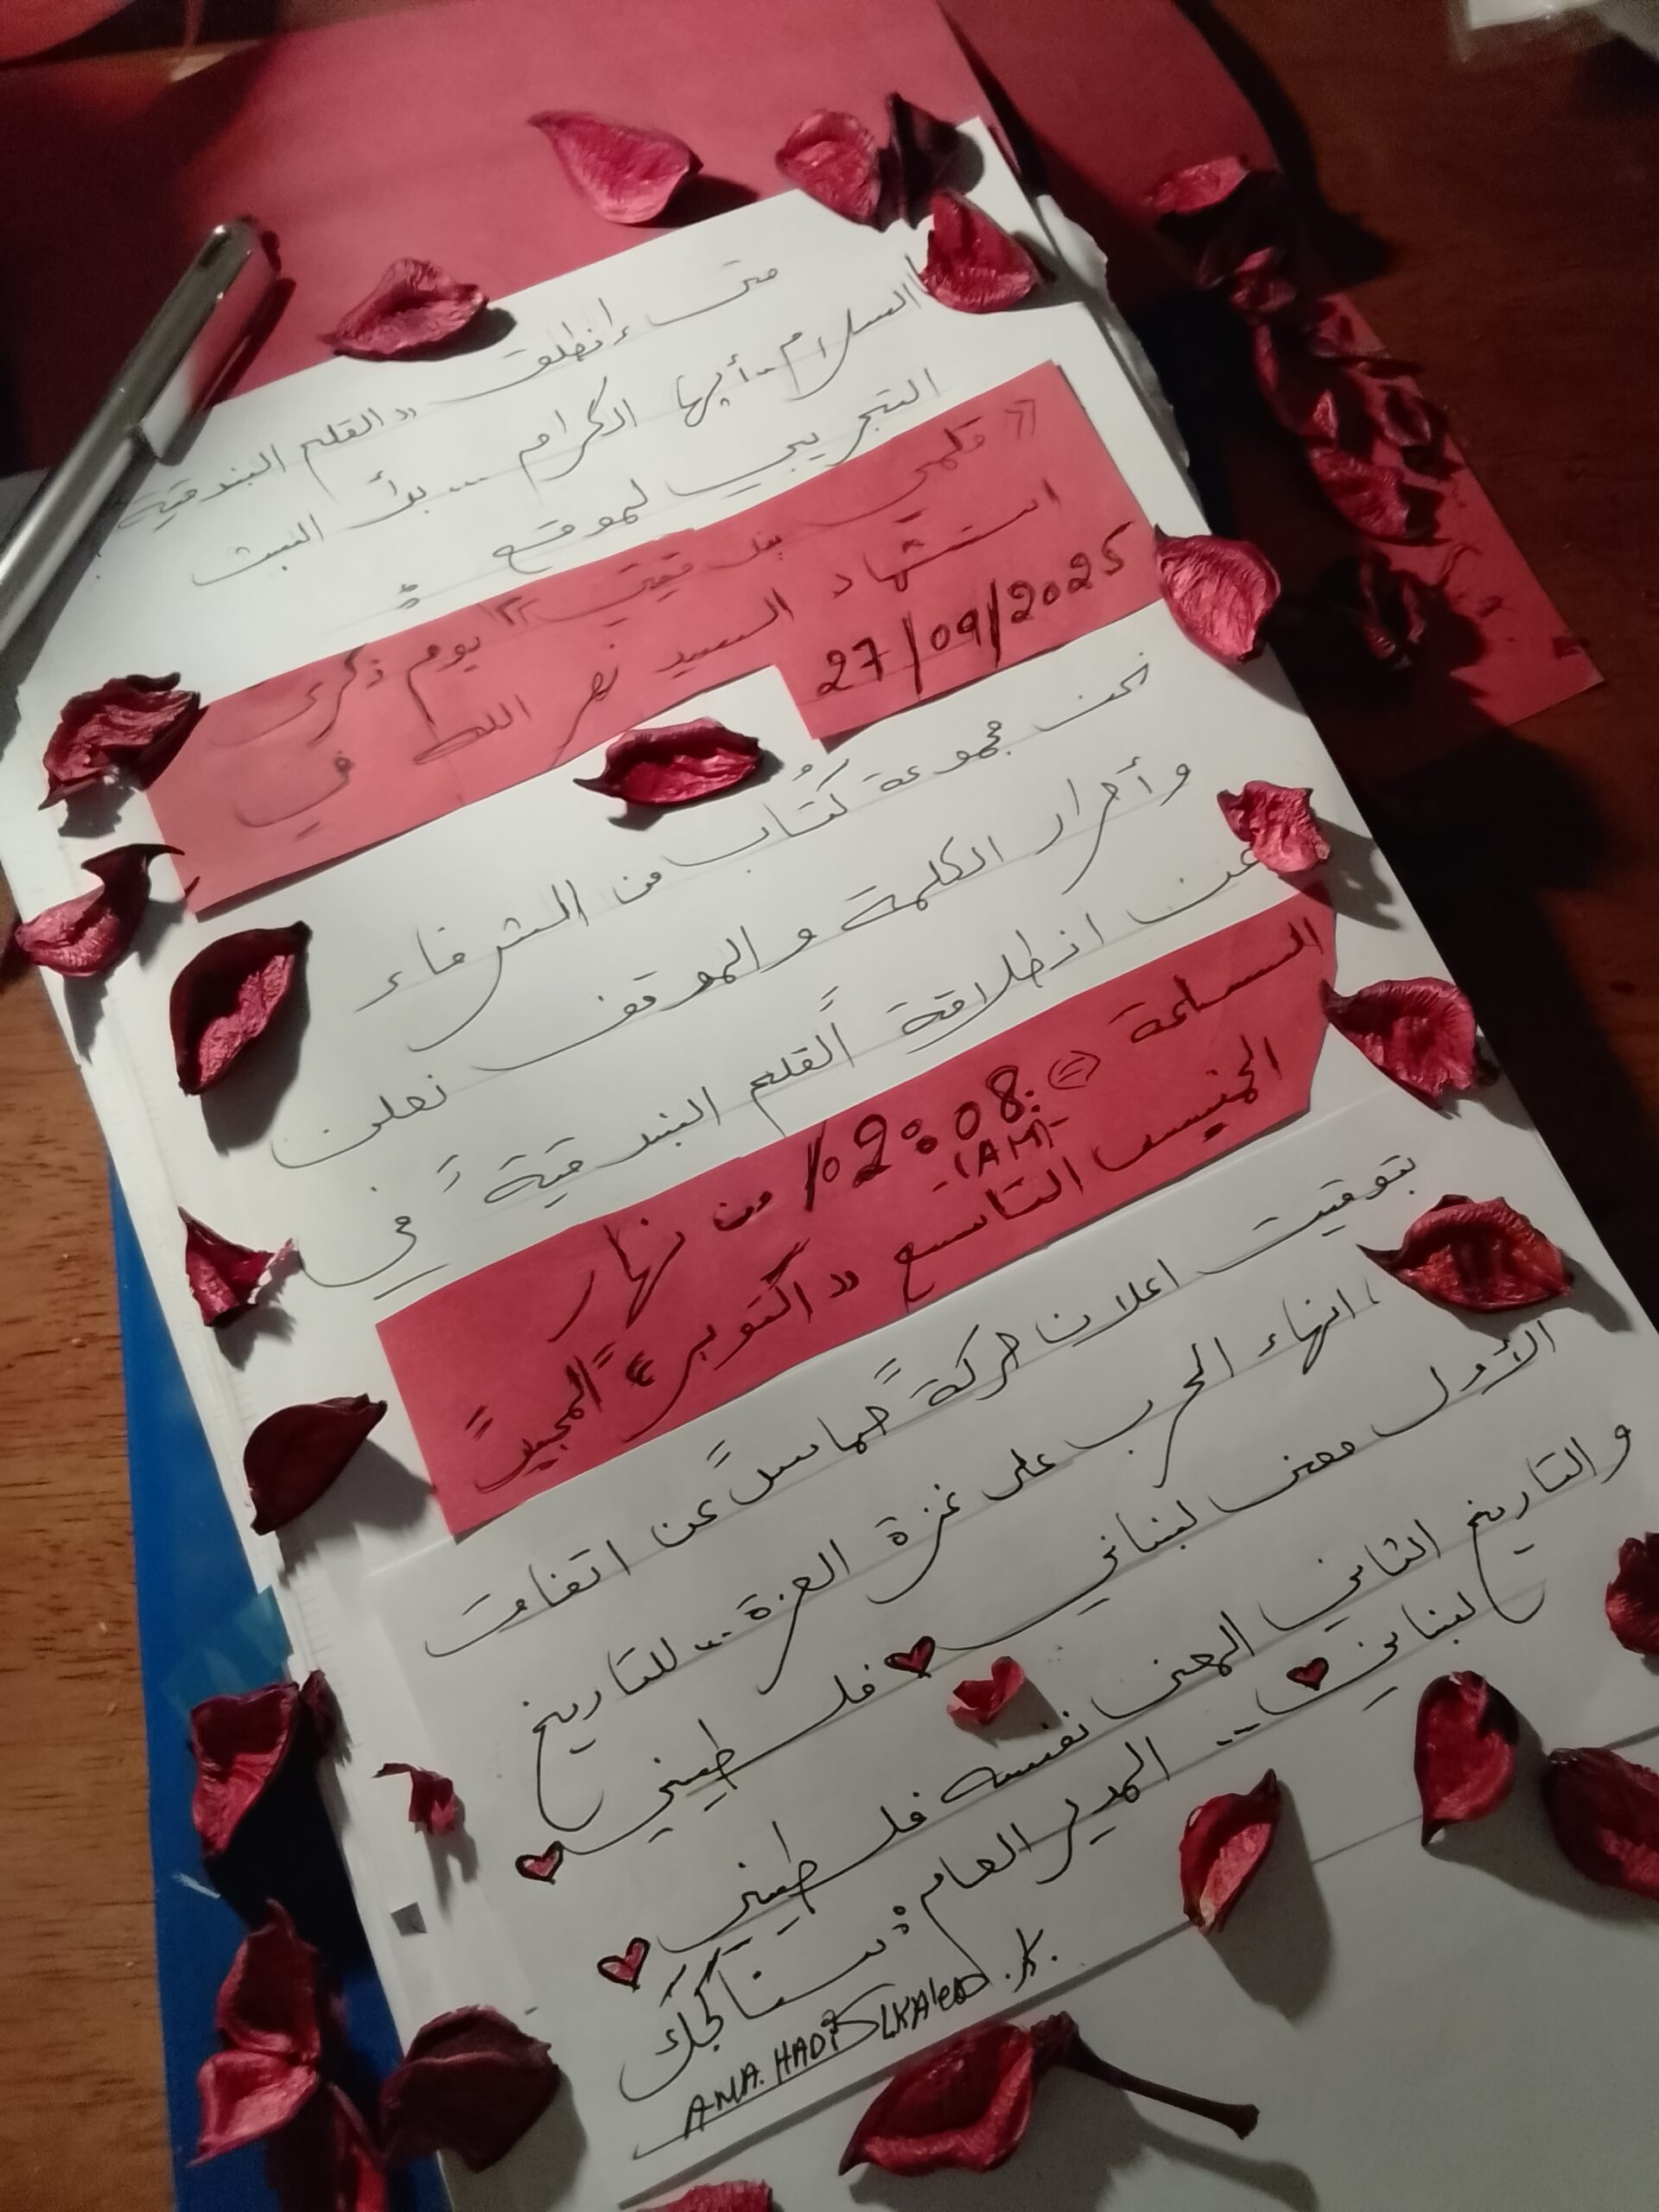 متى إنطلق «القلم البندقية
السلام.. أيها الكرام .... بدأ البث
التجريبي لموقع :
«قلمي بندقيتي» يوم ذكرى
استشهاد السيد نصر الله في
27/09/2025
نحن مجموعة كُتاب من الشرفاء
وأحرار الكلمة والموقف نعلن
عن انطلاقة "القلم البندقية" في
السلعة (=) 02:08 من نهار
-(AM)-
الخميس التاسع «اكتوبر» "المجيد"
بتوقيت اعلان حركة "حماس" عن اتفاق
انهاء الحرب على غزة العزة... للتاريخ
الأول معنى لبناني ♥ فلسطيني ♥
والتاريخ الثاني المعنى نفسه فلسطيني ♥
لبناني ♥ ...
المدير العام :
AMA. HADi ELKAleD .K.